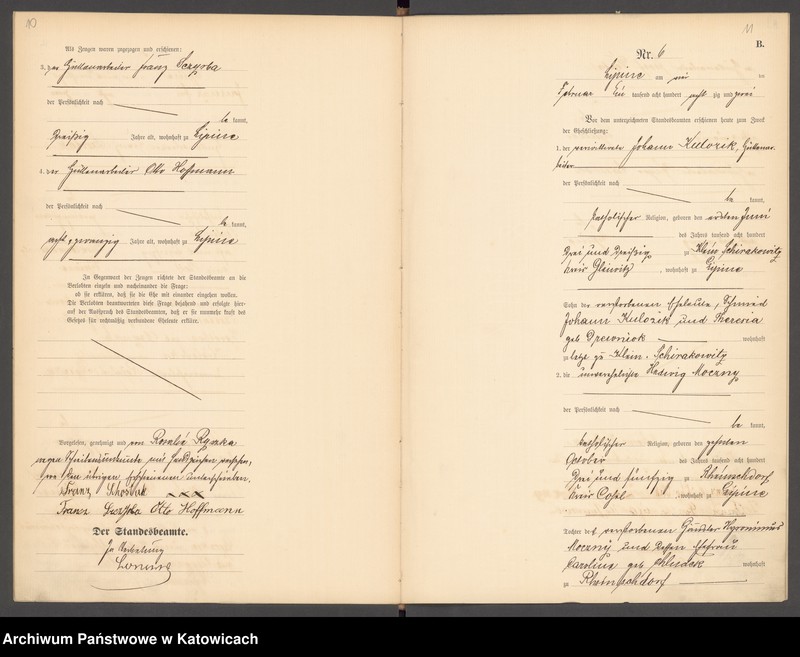 10
Als Zeugen waren zugezogen und erschienen:
3. der Hüttenarbeiter Franz
der Persönlichkeit nach
be kannt,
Dreißig Jahre alt, wohnhaft zu Lipine
4. der Hüttenarbeiter Otto Hoffmann
der Persönlichkeit nach
be kannt,
acht zwanzig Jahre alt, wohnhaft zu Lipine
In Gegenwart der Zeugen richtete der Standesbeamte an die
Verlobten einzeln und nacheinander die Frage:
ob sie erklären, daß sie die Ehe mit einander eingehen wollen.
Die Verlobten beantworteten diese Frage bejahend und erfolgte hier-
auf der Ausspruch des Standesbeamten, daß er sie nunmehr kraft des
Gesetzes für rechtmäßig verbundene Eheleute erkläre.
Vorgelesen, genehmigt und von Rosalie
wegen mit Handzeichen versehen,
von den übrigen Erschienenen unterschrieben.
Franz +++
Franz Otto Hoffmann
Der Standesbeamte.
In Vertretung
11
B.
Nr. 6
Lipine am der
Februar Ein tausend acht hundert acht zig und zwei
Vor dem unterzeichneten Standesbeamten erschienen heute zum Zweck
der Eheschließung:
1. der verwittwete Johann Kulozik, Hüttenar-
beiter
der Persönlichkeit nach
be kannt,
katholischer Religion, geboren den ersten Juni
des Jahres tausend acht hundert
Drei und Dreißig zu Klein Schirakowitz
Kreis Gleiwitz, wohnhaft zu Lipine
Sohn der verstorbenen Eheleute, Schmied
Johann Kulozik und Theresia
geb Drewniok wohnhaft
zuletzt zu Klein-Schirakowitz
2. die unverehelichte Hedwig Moczny
der Persönlichkeit nach
be kannt,
katholischer Religion, geboren den zehnten
October des Jahres tausend acht hundert
Drei und fünfzig zu
Kreis Cosel, wohnhaft zu Lipine
Tochter des verstorbenen Häusler Hyronimus
Moczny und dessen Ehefrau
Carolina geb wohnhaft
zu
Archiwum Państwowe w Katowicach